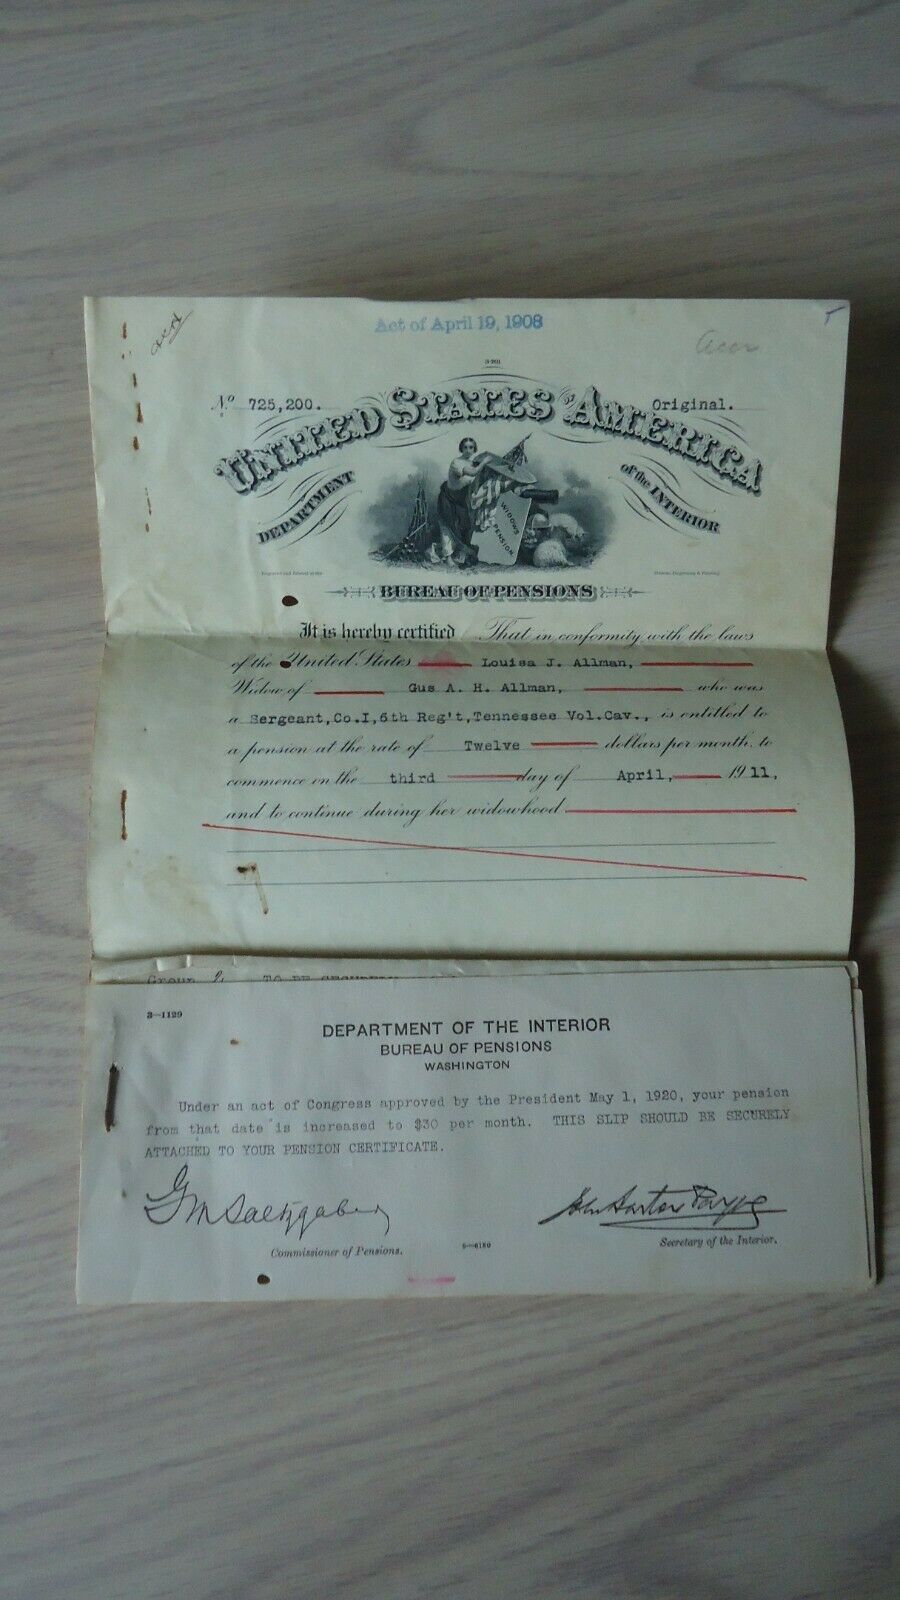 Act of April 19, 1908
3-201
No 725,200.
Original.
UNITED STATES of AMERICA
DEPARTMENT of the INTERIOR
WIDOWS PENSION
BUREAU OF PENSIONS
It is hereby certified That in conformity with the laws
of the United States Louisa J. Allman,
Widow of Gus A. H. Allman, who was
a Sergeant, Co.I, 6th Reg't, Tennessee Vol.Cav., is entitled to
a pension at the rate of Twelve dollars per month, to
commence on the third day of April, 1911,
and to continue during her widowhood
Group 2 TO BE SECURELY
3—1129
DEPARTMENT OF THE INTERIOR
BUREAU OF PENSIONS
WASHINGTON
Under an act of Congress approved by the President May 1, 1920, your pension
from that date is increased to $30 per month. THIS SLIP SHOULD BE SECURELY
ATTACHED TO YOUR PENSION CERTIFICATE.
GM Saltzgaber
John Barton Payne
Commissioner of Pensions.
Secretary of the Interior.